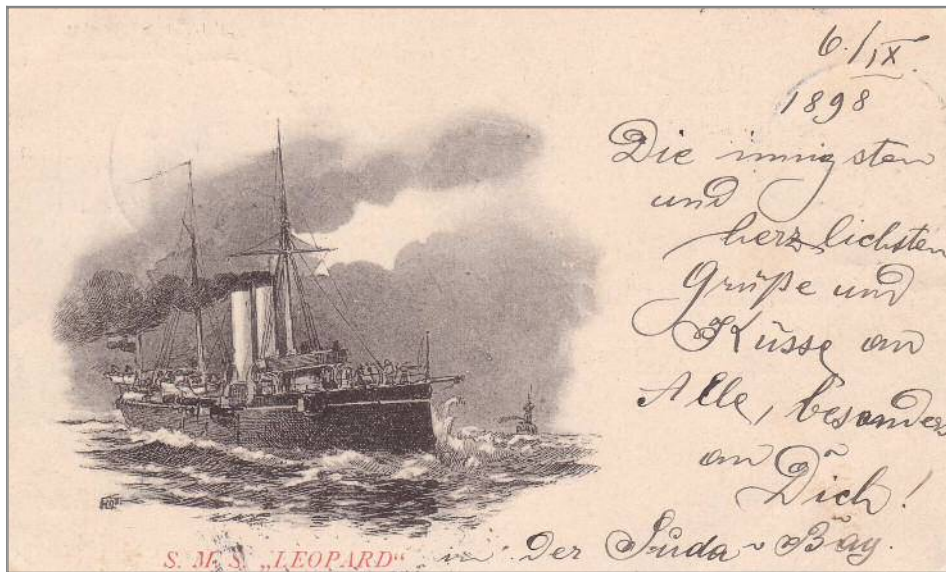 6./IX.
1898
Die innigsten
und
herzlichsten
Grüße und
Küsse an
Alle, besonders
an
Dich!
S. M. S. „LEOPARD“ in der Suda-Bay.